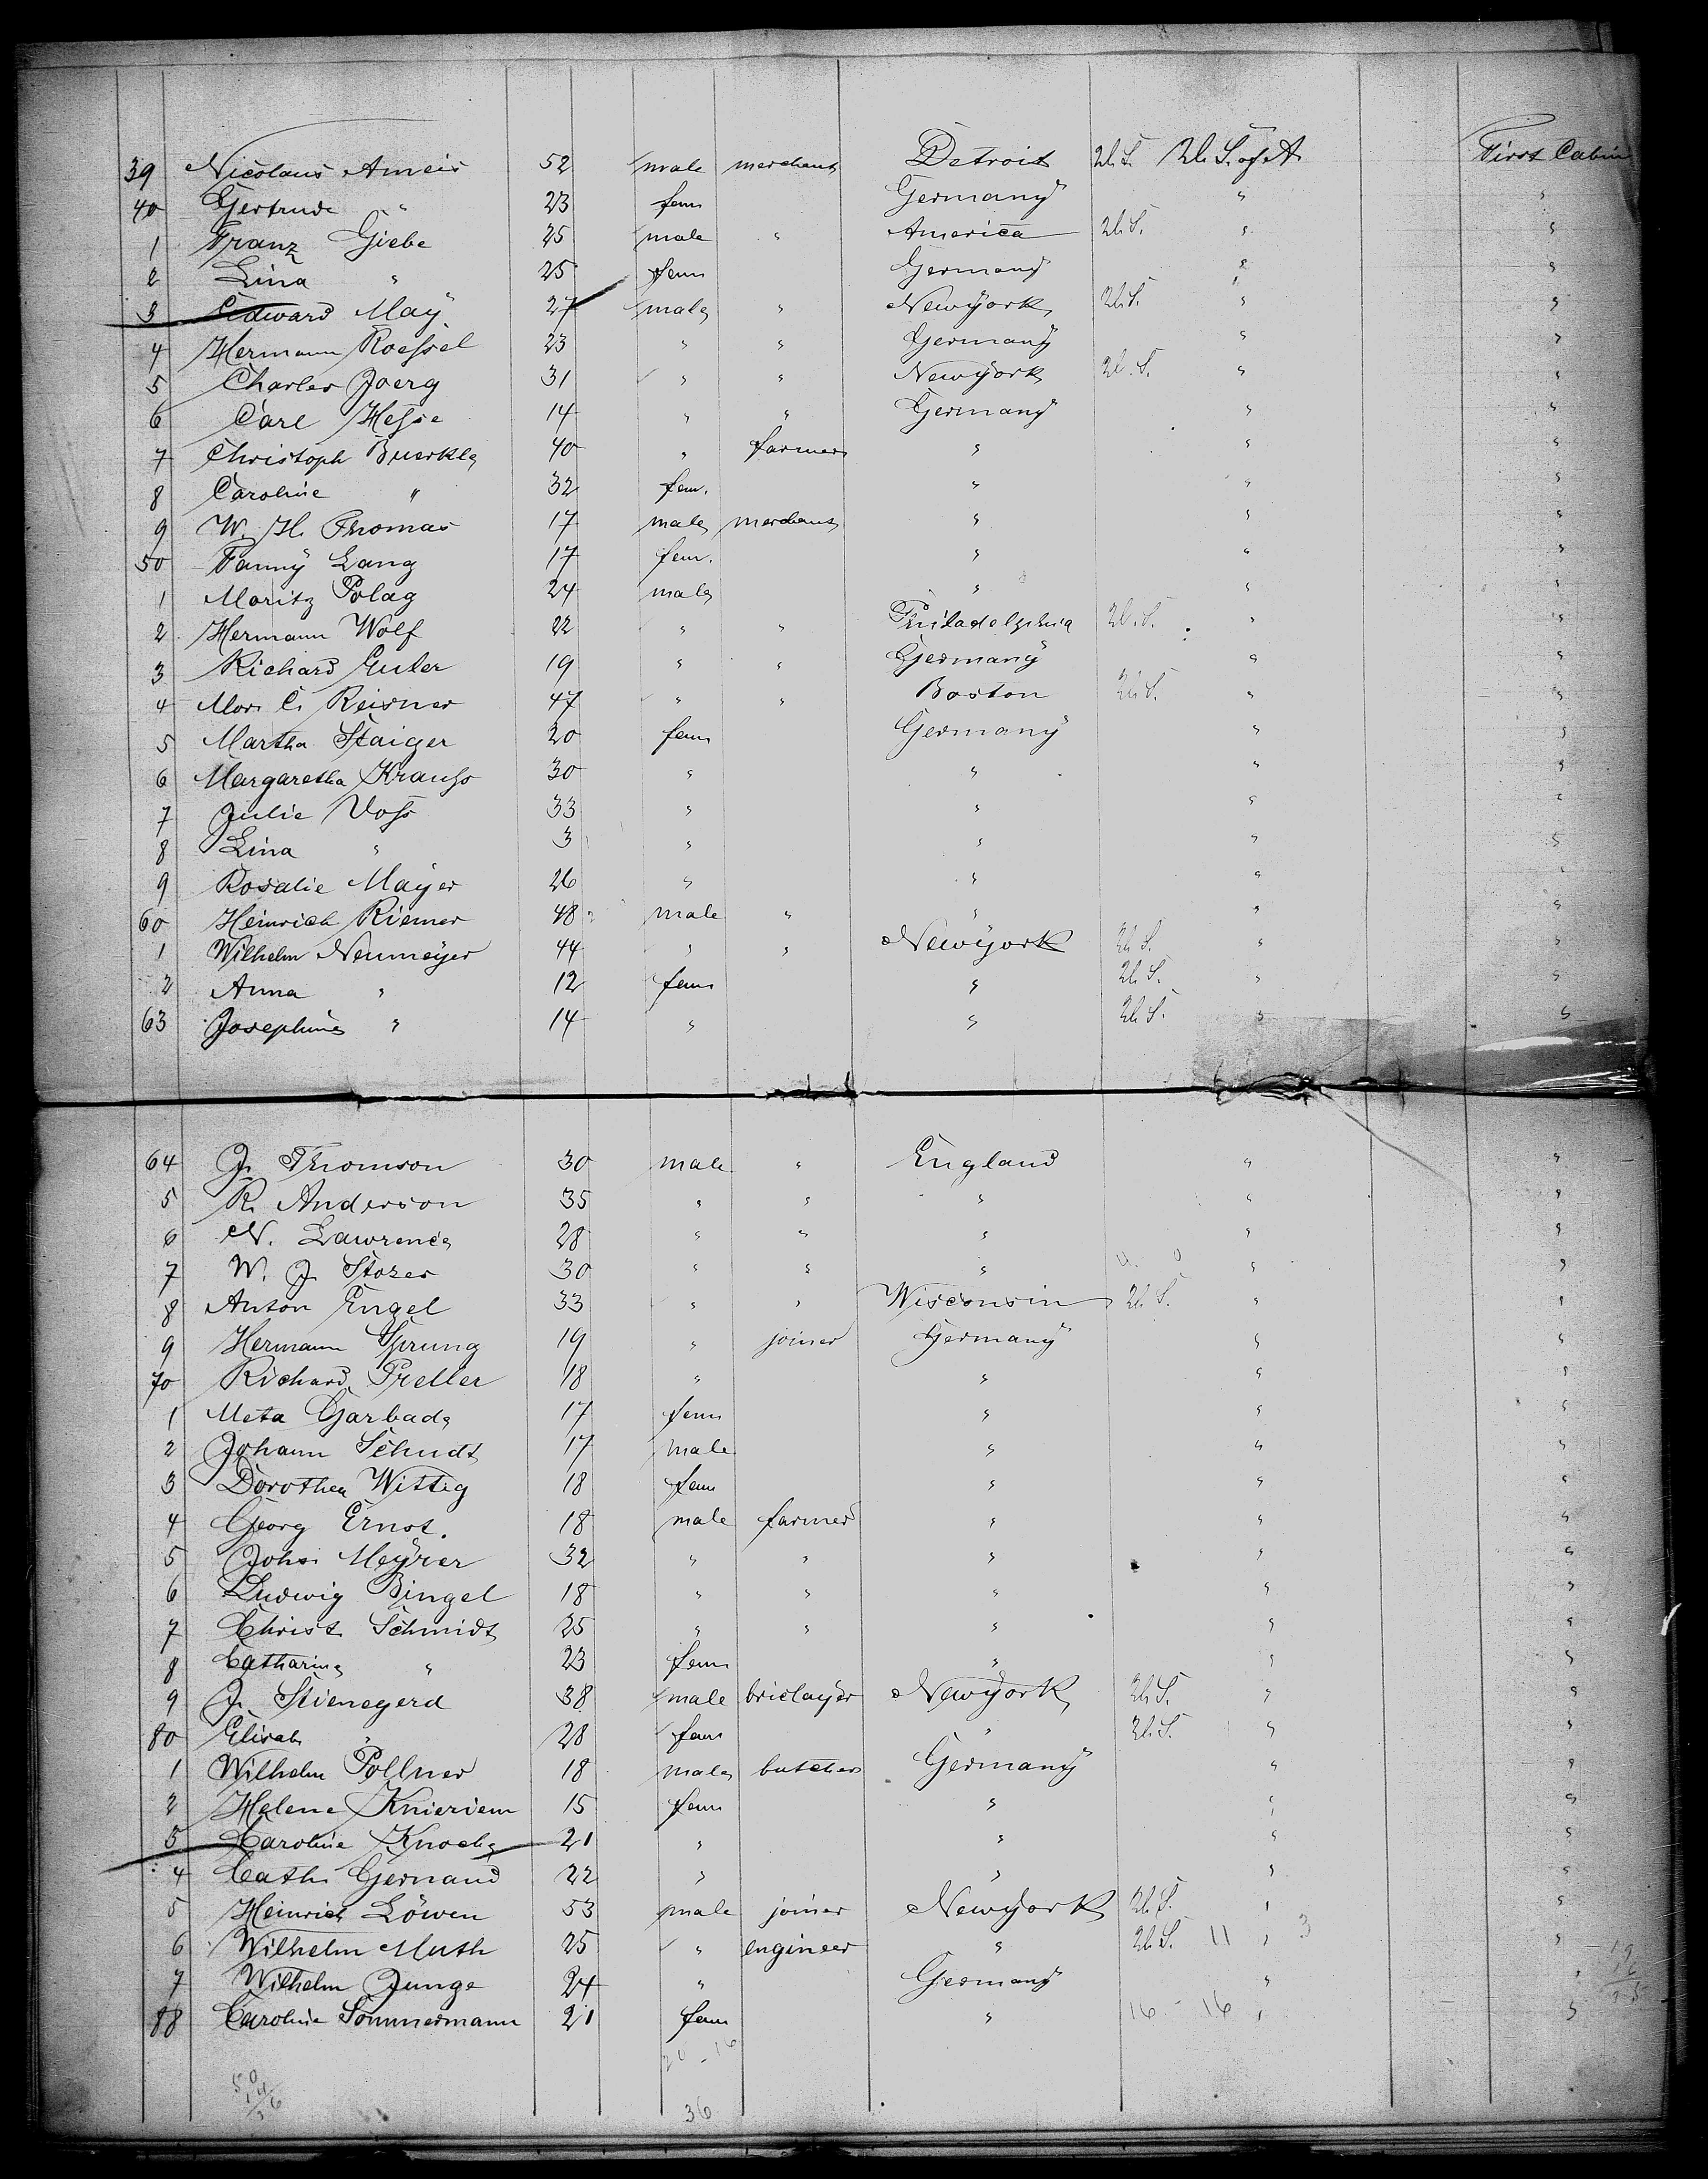 39 Nicolaus Ameis 52 male merchant Detroit U.S. U.S. of A. First Cabin
40 Gertrude " 23 fem Germany " "
1 Franz Giebe 25 male " America U.S. " "
2 Lina " 25 fem Germany " "
3 Edward Maÿ 27 male " Newÿork U.S. " "
4 Hermann Roeſsel 23 " " Germanÿ " "
5 Charles Joerg 31 " " Newÿork U.S. " "
6 Carl Heſse 14 " " Germanÿ " "
7 Christoph Buerkle 40 " farmer " " "
8 Caroline " 32 fem. " " "
9 W. H. Thomas 17 male merchant " " "
50 Fannÿ Lang 17 fem. " " "
1 Moritz Polag 24 male " " "
2 Hermann Wolf 22 " " Philadelphia U.S. " "
3 Richard Euler 19 " " Germanÿ " "
4 Mor. C. Reisner 47 " " Boston U.S. " "
5 Martha Staiger 20 fem Germanÿ " "
6 Margaretha Krauſs 30 " " " "
7 Julie Voſs 33 " " " "
8 Lina " 3 " " " "
9 Rosalie Maÿer 26 " " " "
60 Heinrich Riemer 48 male " " " "
1 Wilhelm Neumeÿer 44 " " Newÿork U.S. " "
2 Anna " 12 fem " U.S. " "
63 Josephine " 14 " " U.S. " "
64 J. Thomson 30 male " England " "
5 R. Anderson 35 " " " " "
6 N. Lawrence 28 " " " " "
7 W. J. Storer 30 " " " " "
8 Anton Engel 33 " " Wisconsin U.S. " "
9 Hermann Sprung 19 " joiner Germanÿ " "
70 Richard Preller 18 " " " "
1 Meta Garbade 17 fem " " "
2 Johann Schudt 17 male " " "
3 Dorothea Wittig 18 fem " " "
4 Georg Ernst. 18 male farmer " " "
5 Johs Meÿrer 32 " " " " "
6 Ludwig Bingel 18 " " " " "
7 Christ. Schmidt 25 " " " " "
8 Catharine " 23 fem " " "
9 J. Stienegerd 38 male briclayer Newÿork U.S. " "
80 Elisab. " 28 fem " U.S. " "
1 Wilhelm Pollner 18 male butcher Germanÿ " "
2 Helene Knieriem 15 fem " " "
3 Caroline Knoche 21 " " " "
4 Cath. Gernand 22 " " " "
5 Heinrich Löwen 53 male joiner Newÿork U.S. " "
6 Wilhelm Muth 25 " engineer " U.S. 11 " 3 "
7 Wilhelm Junge 24 " Germanÿ " "
88 Caroline Sommermann 21 fem " 16 - 16 " "
36